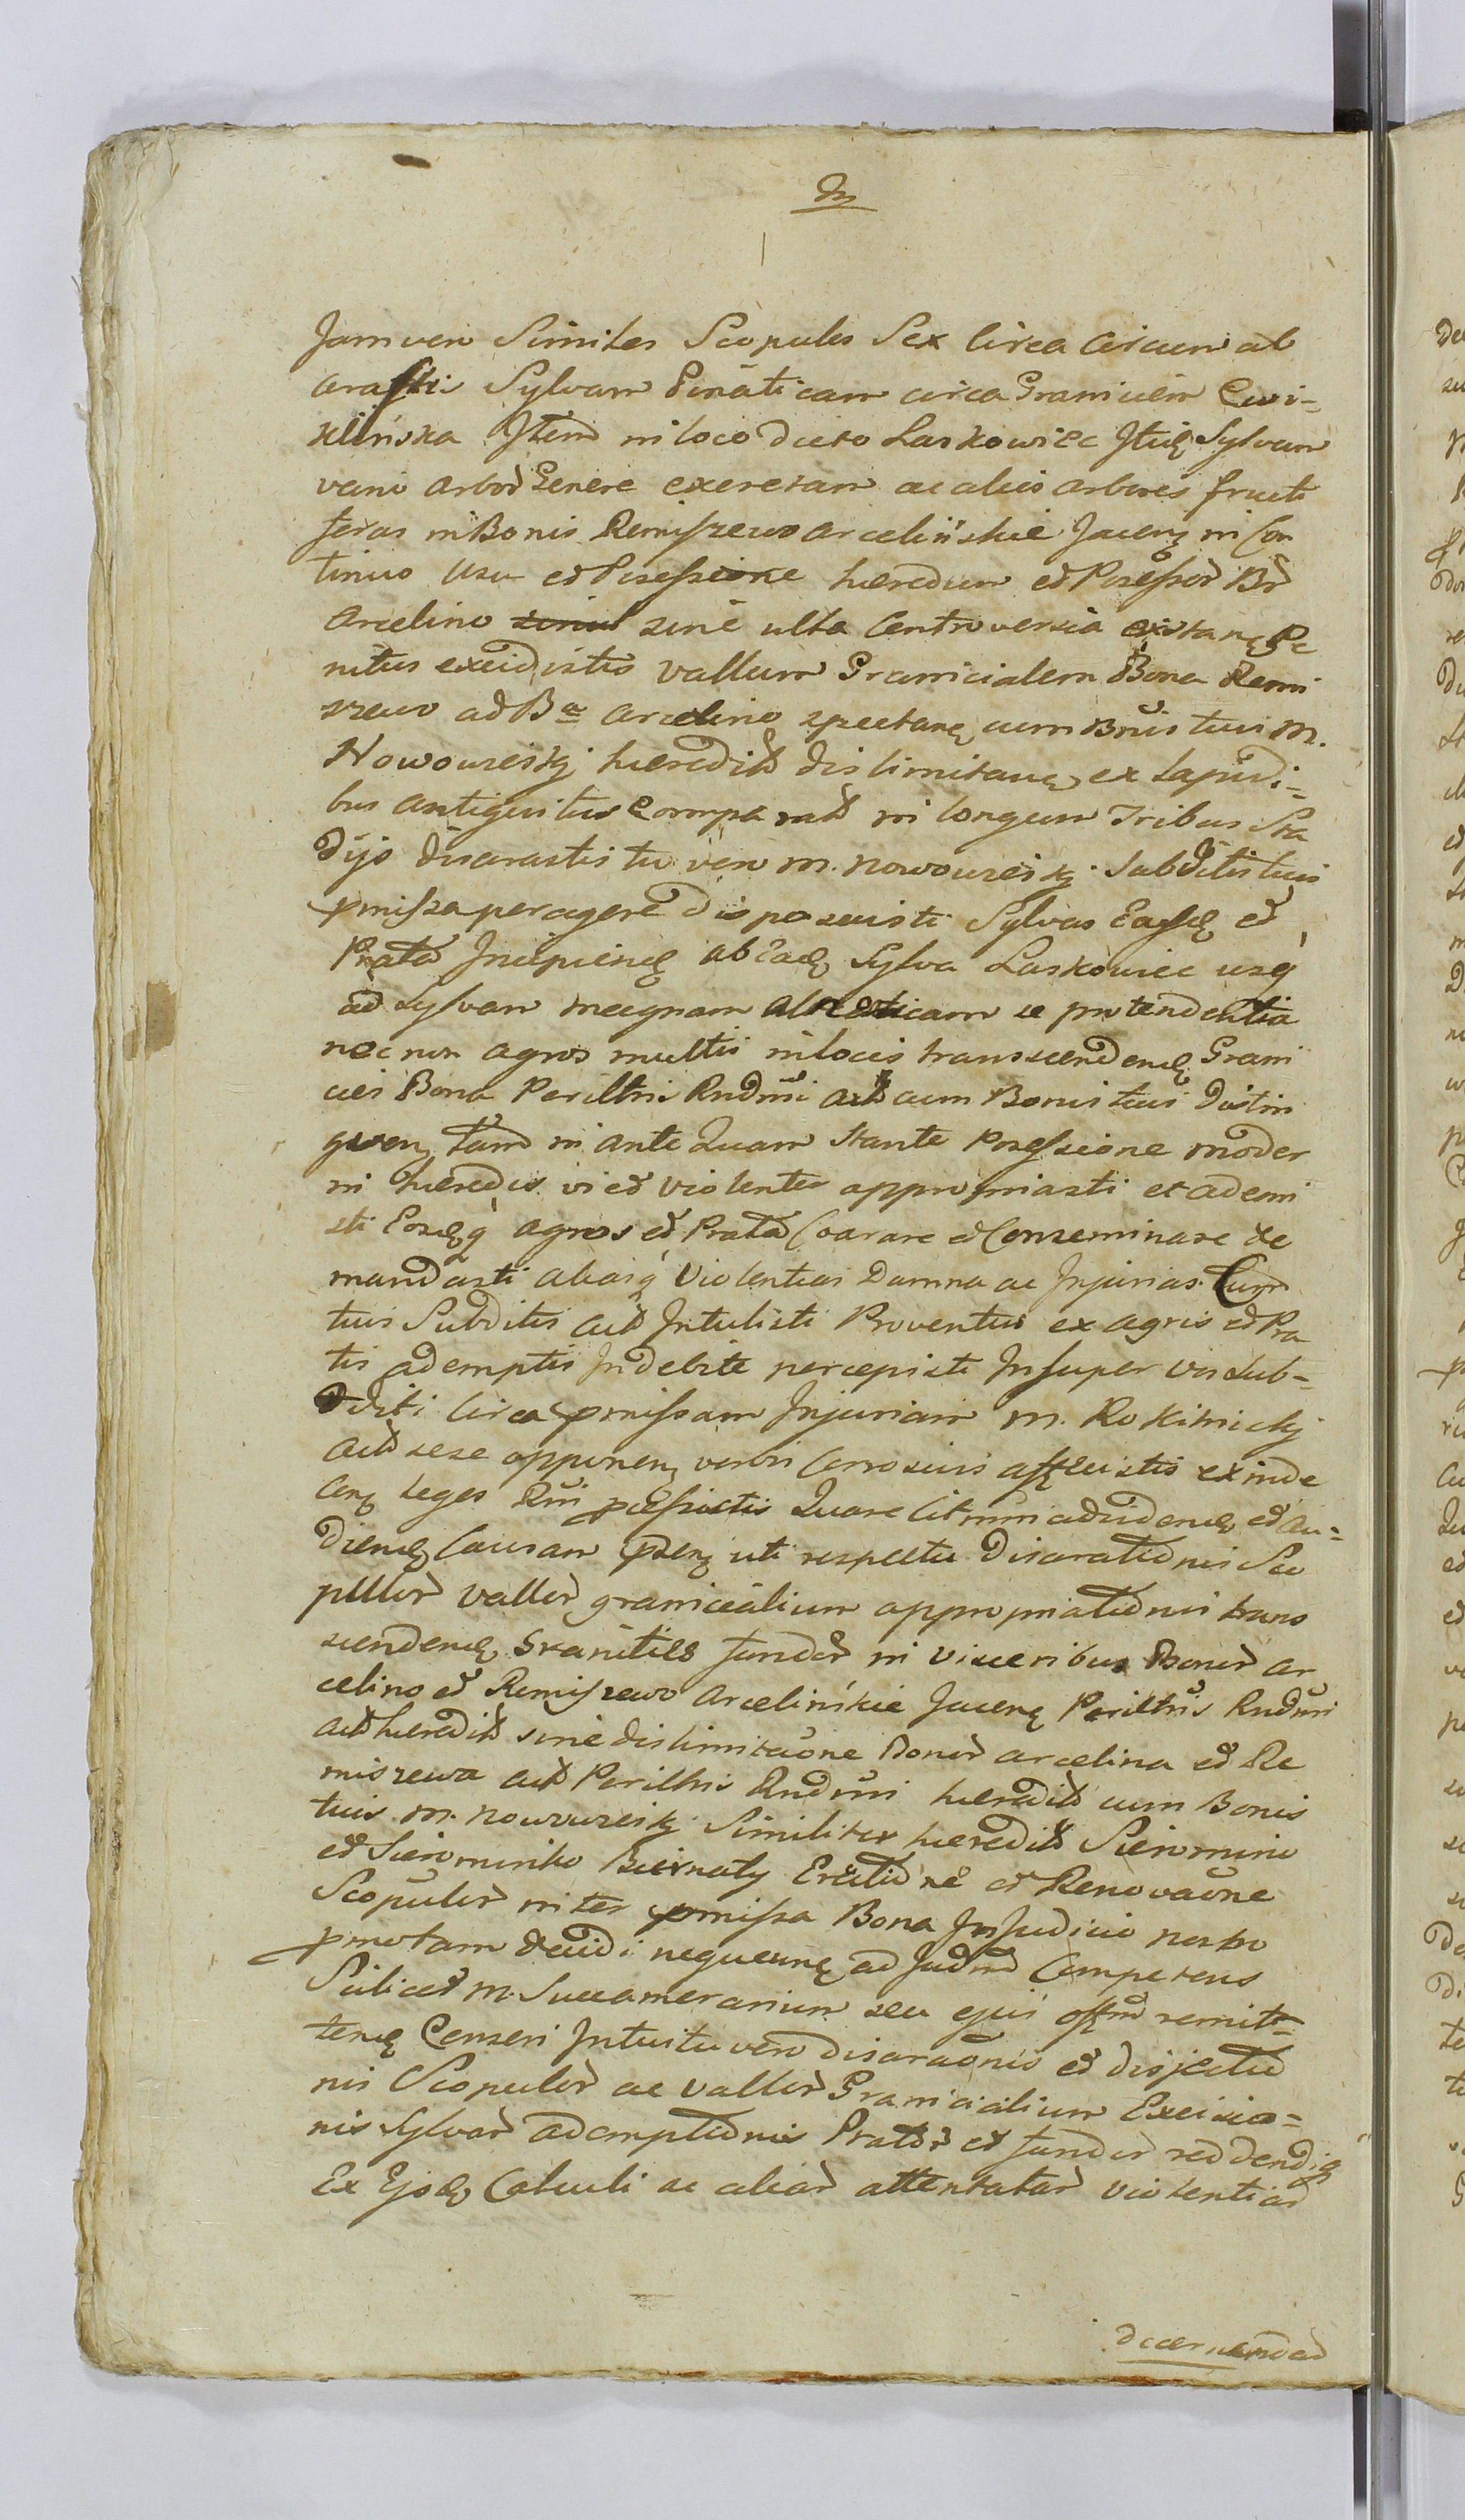 Jam vero Similes Scopulos Sex Circa Circum ab
arasti Sylvam Pinaticam circa Graniciem Cwi-
klińska Item in loco dicto Laskowiec Itidē Sylvam
varii arborũ Genere excretam ac alias arbores fructi
feras in Bonis Remiszewo arcelińskie Jacenę in Con
tinuo Usu et Possessione hæredum et Possessorũ Brũ
Arcelino sine ulla Controversia existanę Pe
nitus excidistis Vallum Granicialem Bona Remi
szewo ad Ba arcelino spectanę cum Bnis tuis M.
Nowowieiskj hæredit̃ dislimitanę ex Lapidi-
bus antiquitus comparat̃ in longum Tribus Sta
dijs disarastis tu vero M. Nowowieiskj Subditis tuis
pmissa peragere disposuisti Sylvas Easdē et
Prata Incipiendę ab Eadē Sylva Laskowiec usq
ad Sylvam magnam alneticam se protendentia
nec non agros multis in locis transcendendę Grani
cies Bona Perillris Rndmi act̃ cum Bonis tuis Distin
guenę tam in ante Quam stante Possessione moder
ni hæredis vi et violenter appropriasti et ademi
sti Eosdēq agros et Prata Coarare et Conseminare de
mandasti aliasq Violentias Damna ac Injurias Cum
tuis Subditis act̃ Intulisti Proventus ex agris et Pra
tis ademptis Indebite percepisti Insuper vos Sub-
diti Circa pmissam Injuriam M. Rokitnickj
act̃ sese opponenę verbis Corrosivis affecistis exinde
Cenę leges Rni pæssistis Quare Cit̃mini ad videndę et au-
diendę Causam psenę uti respectu Disarationis Sco
pulorũ vallorũ granicealium appropriationis trans
cendendę Granities fundorũ in visceribus Bonorũ ar
celino et Remiszewo Arcelińskie Jacenę Perillris Rndmi
act̃ hæredit̃ sine dislimitaõne Bonorũ arcelina et Re
miszewa act̃ Perillris Rndmi hæredit̃ cum Bonis
tuis M. Nowowieiskj Similiter hæredit̃ Sieromino
et Sierominko Biernaty Erectione et Renovaõne
Scopulorũ inter pmissa Bona In Judicio nostro
pnotam decidi nequeunę ad Judm Competens
Scilicet M. Succamerarium seu ejus offm remit-
tendę Censeri Intuitu vero disaraõnis et disjectio
nis Scopulorũ ac Vallorũ Granicialium Excisio-
nis Sylvarũ ademptionis Pratorũ et fundorũ reddendiq
Ex Ijsdē Calculi ac aliarũ attentatarũ Violentiarũ
decernendarũ